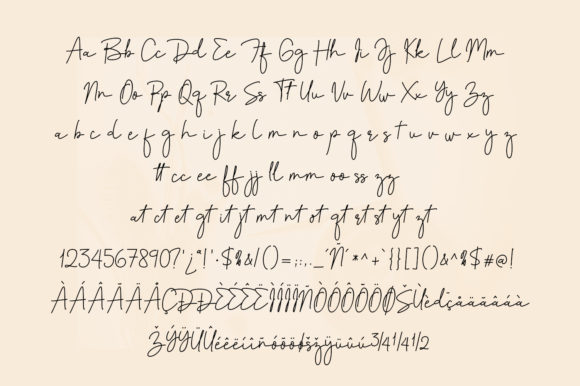 Aa Bb Cc Dd Ee Ff Gg Hh Ii Jj Kk Ll Mm
Nn Oo Pp Qq Rr Ss Tt Uu Vv Ww Xx Yy Zz
a b c d e f g h i j k l m n o p q r s t u v w x y z
tt cc ee ff jj ll mm oo ss zz
at ct et gt it jt mt nt ot qt rt st yt zt
1234567890?'¿ª!'·$%&/()=;:,._¨Ñ¨*^+`{}[]()&^%$#@!
ÀÁÂÃÄÅÇÐÐÈÉÊËÌÍÎÏÑÒÓÔÕÖØŠÙèdçåãäâáà
ŽÝŸÜÛéêëíîñóôõöøšžýÿüûú3/41/41/2